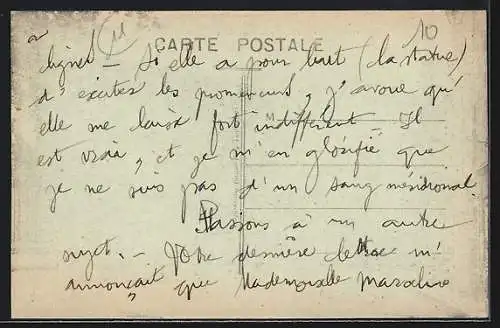 11
10
CARTE POSTALE
digne! – Si elle a pour but (la statue)
d'exciter les promeneurs, j'avoue qu'
elle me laisse fort indifférent – Il
M
est vrai, et je m'en glorifie que
je ne suis pas d'un sang méridional.
Passons à un autre
sujet. – Votre dernière lettre m'
annonçait que Mademoiselle Marceline